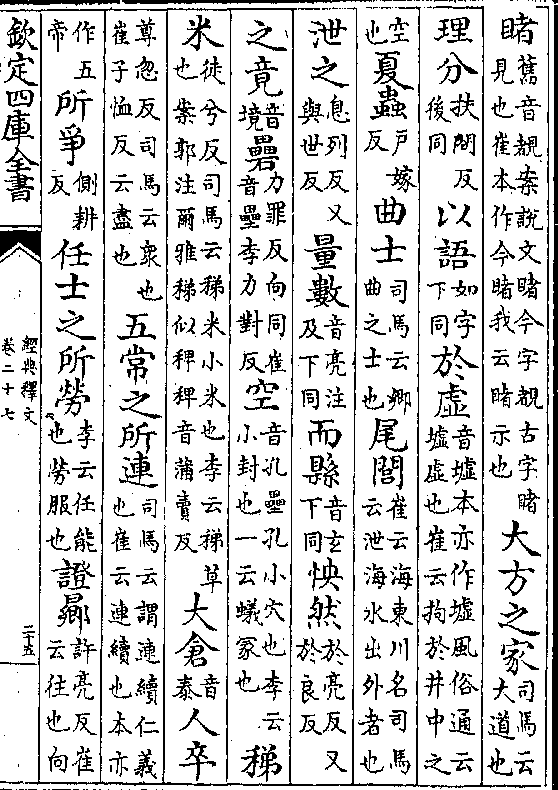 睹舊音覩案說文睹今字覩古字睹見也崔本作今睹我云睹示也大方之家司馬云大道也
理分扶問反後同以語如字下同於虛音墟本亦作墟風俗通云墟虛也崔云拘於井中之
空也夏蟲戶嫁反曲士司馬云鄉曲之士也尾閭崔云海東川名司馬云泄海水出外者也
泄之息列反又與世反量數音亮注及下同而縣音玄下同怏然於亮反又於良反
之竟音境礨力罪反向同崔音壘李力對反空音孔壘孔小穴也李云小封也一云蟻冢也稊
米徒兮反司馬云稊米小米也李云稊草也案郭注爾雅稊似稗稗音蒲賣反大倉音泰人卒
尊忽反司馬云衆也崔子恤反云盡也五常之所連司馬云謂連續仁義也崔云連續也本亦
作五帝所爭側耕反任士之所勞李云任能也勞服也證曏許亮反崔云往也向
欽定四庫全書
經典釋文
卷二十七
二十五